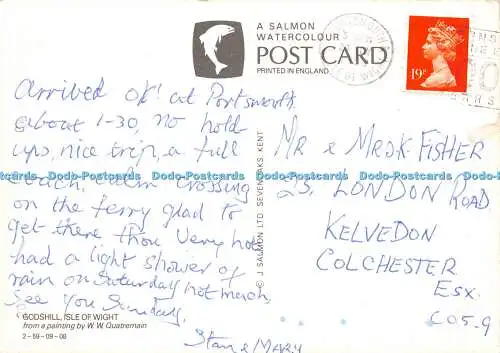 A SALMON
WATERCOLOUR
POST CARD
PRINTED IN ENGLAND
19P
Arrived OK! at Portsmouth
about 1-30, no hold
ups, nice trip, a full
coach, calm crossing
on the ferry glad to
get there thou very hot
had a light shower of
rain on Saturday not much
See you Sunday.
Stan & Mary
MR & MRS J.K. FISHER
23, LONDON ROAD
KELVEDON
COLCHESTER
ESX.
CO5.9
© J SALMON LTD SEVENOAKS KENT
GODSHILL, ISLE OF WIGHT
from a painting by W. W. Quatremain
2-59-09-08
Dodo-Postcards Dodo-Postcards Dodo-Postcards Dodo-Postcards